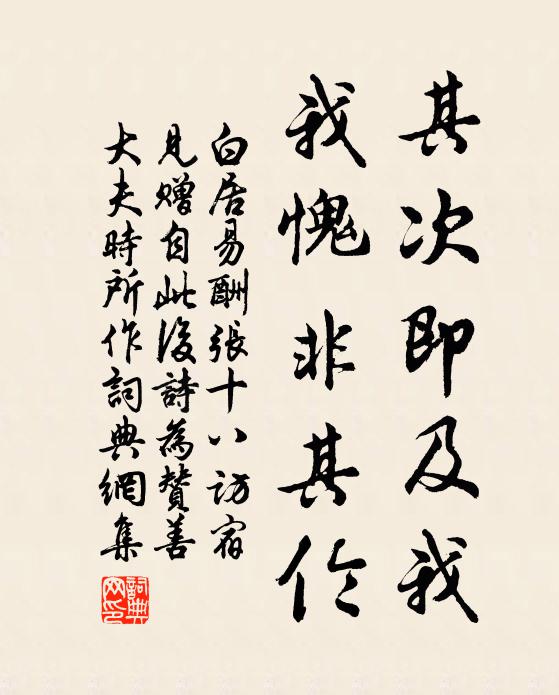 其次即及我
我愧非其伦
白居易酬張十八訪宿
見贈自此後詩為贊善
大夫時所作詞典網集
詞典網印